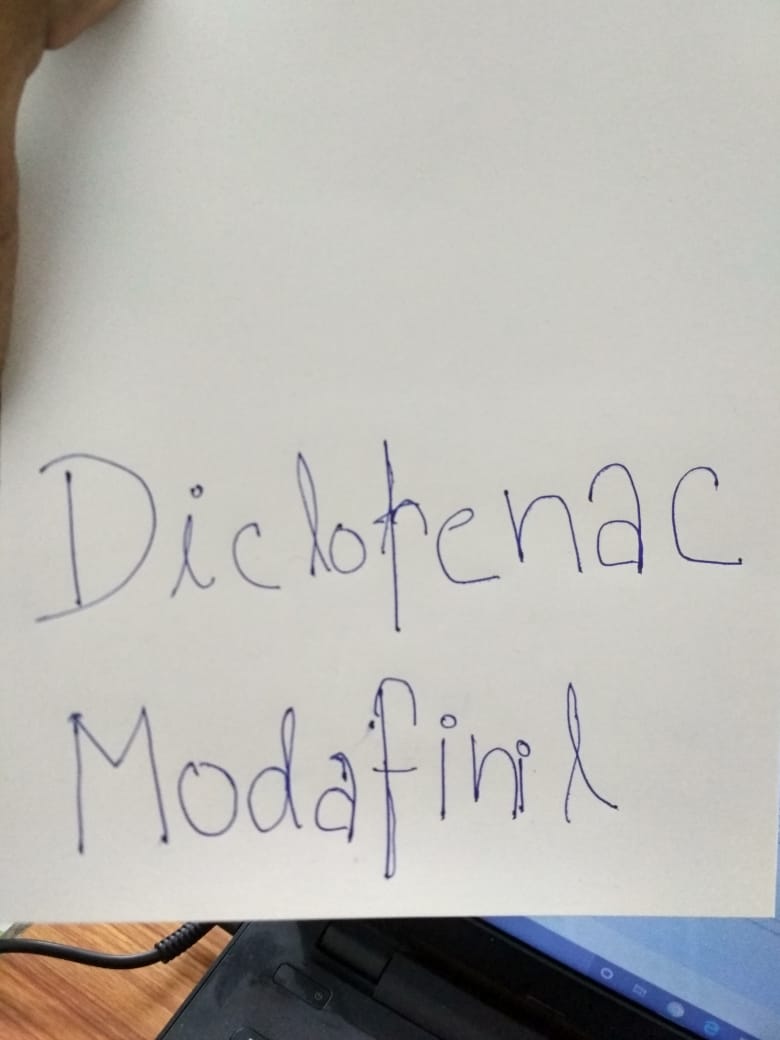 Diclofenac
Modafinil